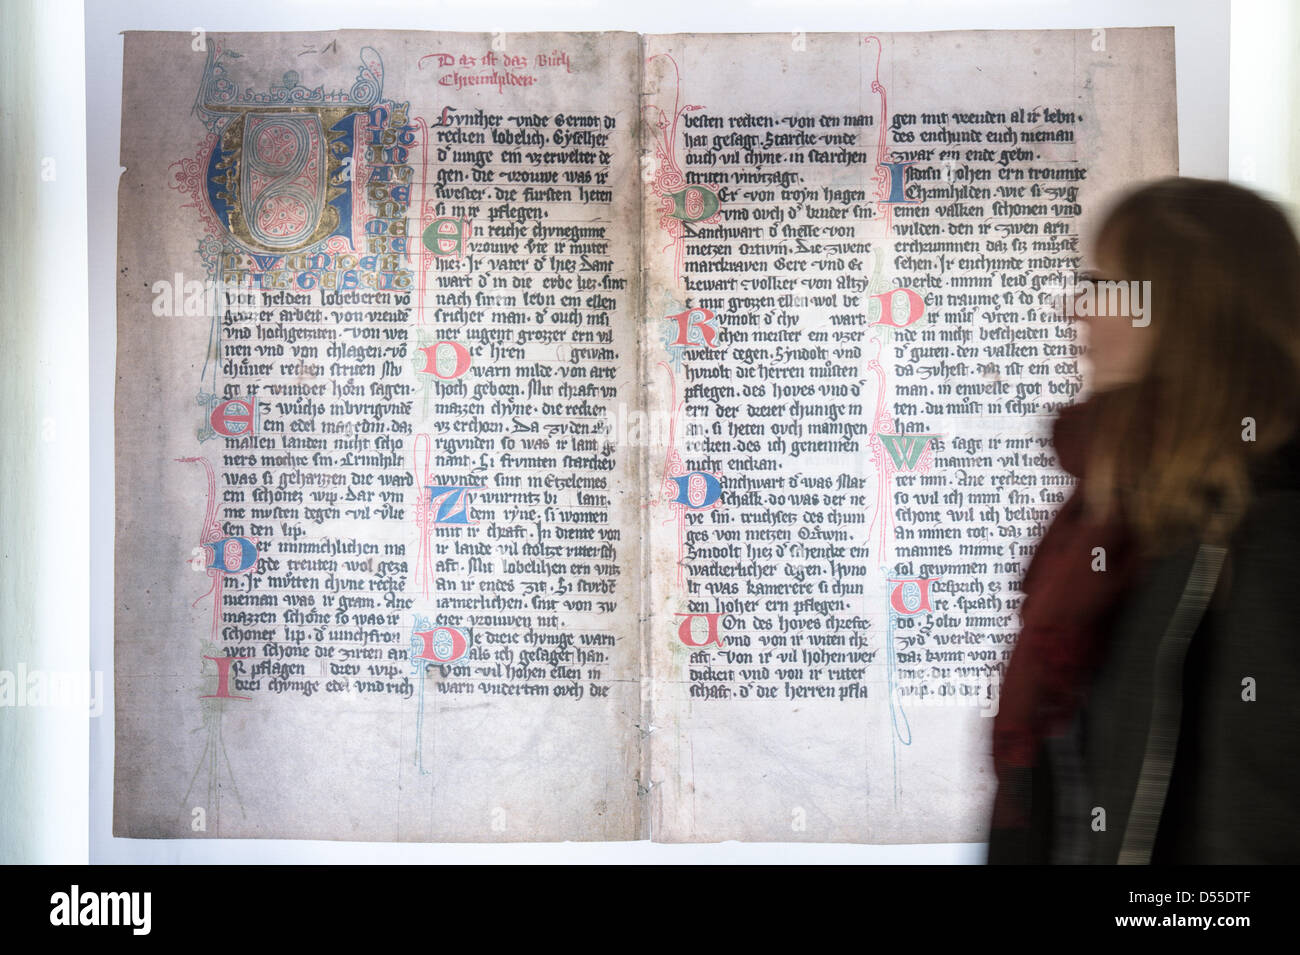 21
Daz ist daz Buoch
Chreimhilden·
UNS IST IN ALTEN MEREN
WUNDER VIL GESEIT
von helden lobeberen vō
grozzer arbeit· von vreude
vnd hochgeziten· von wei
nen vnd von chlagen· vō
chuͤner recken striten Mu
gt ir wunder hoͤrn sagen·
Ez wuͦchs in burigunden
ein edel magedin· daz
in allen landen nicht scho
ners mochte sin· Crimhilt
was si geheizzen die ward
ein schonez wip· Dar vm
me musten degen vil vlie
sen den lip·
Der minnichlichen ma
gde treuten wol geza
m· Ir muͦtten chune recken
nieman was ir gram· Ane
mazzen schone so was ir
schoner lip· d' iunchfron
wen schone die zirten an
Ir pflagen drey wip·
drei chunige edel vnd rich
Gynther vnde Gernot di
recken lobelich· Gyselher
d' iunge ein vz erwelter de
gen· die vrouwe was ir
swester· die fursten heten
si in ir pflegen·
Ein reiche chuneginne
vrouwe vte ir muter
hiez· Ir vater d' hiez Danc
wart d' in die erbe liez· sint
nach sinem lebn ein ellen
thricher man· d' ouch in si
ner iugent grozzer ern vil
Die h'ren gewan·
warn milde· von arte
hoch geborn· Mit chraft vn
mazzen chune· die recken
vz erchorn· Da zu den By
rigunden so was ir lant ge
nant· Si frumten starckev
wunder sint in Etzelemes
Zu wurmtz bi lant·
dem ryne· si wonten
mit ir chraft· In diente von
ir lande vil stoltze ritersch
aft· Mit lobelihen ern vntz
an ir endes zit· Si sturben
iæmerlichen· sint von zw
eier vrouwen nit·
Die dreie chunige warn
als ich gesaget han·
Von vil hohen ellen in
warn vndertan ouch die
besten recken· von den man
hat gesagt· Starcke vnde
ouch vil chune· in starchen
striten vnverzagt·
Der von troyn hagen
vnd ouch d' bruder sin·
Danchwart d' snelle von
metzen ortwin· Die zwene
marckraven Gere vnd Ec
kewart volker von Altzy
e mit grozen ellen wol be
Rumolt d' chv wart·
chen meister ein vzer
welter degen· Syndolt vnd
hunolt die herren muͦsten
pflegen· des hoves vnd d'
ern der dreier chunige m
an· si heten ouch manigen
recken· des ich genennen
nicht enckan·
Danchwart d' was Mar
schalk· do was der ne
ve sin· truchsetz des chuni
ges von metzen Ortwin·
Sindolt hiez d' schencke ein
wackerlicher degen· Hyno
lt was kamerere si chun
den hoher ern pflegen·
Von des hoves chrefte
vnd von ir witen chr
aft· von ir vil hohen wer
dickeit vnd von ir ruter
schaft· d' die herren pfla
gen mit vreuden al ir lebn·
des enchunde euch nieman
zwar ein ende gebn·
In disen hohen ern troumte
Chrimhilden· wie si zyg
einen valken schonen vnd
wilden· den ir zwen arn
erchrummen daz si muͦste
sehen· Ir enchunde in dirre
werlde· nimm' leid' gesche
Den traume si do sag
ir muͦt' vten· si enchun
de in nicht bescheiden baz
d' guten· den valken den du
da zuhest· daz ist ein edel
man· in enwelle got behuͦ
ten· du muͦst in schir
han·
Waz sagt ir mir vo
mannen vil liebe
ter min· Ane recken
so wil ich imm' sin· sus
schone wil ich belibn
an minen tot· daz ich
mannes minne
sol gewinnen not·
Vorsprich ez
re· sprach ir
do· Soltu immer
zu d' werlde
daz kumt von
nne· du wirst
wip· ob dir
alamy
Image ID: D55DTF
www.alamy.com